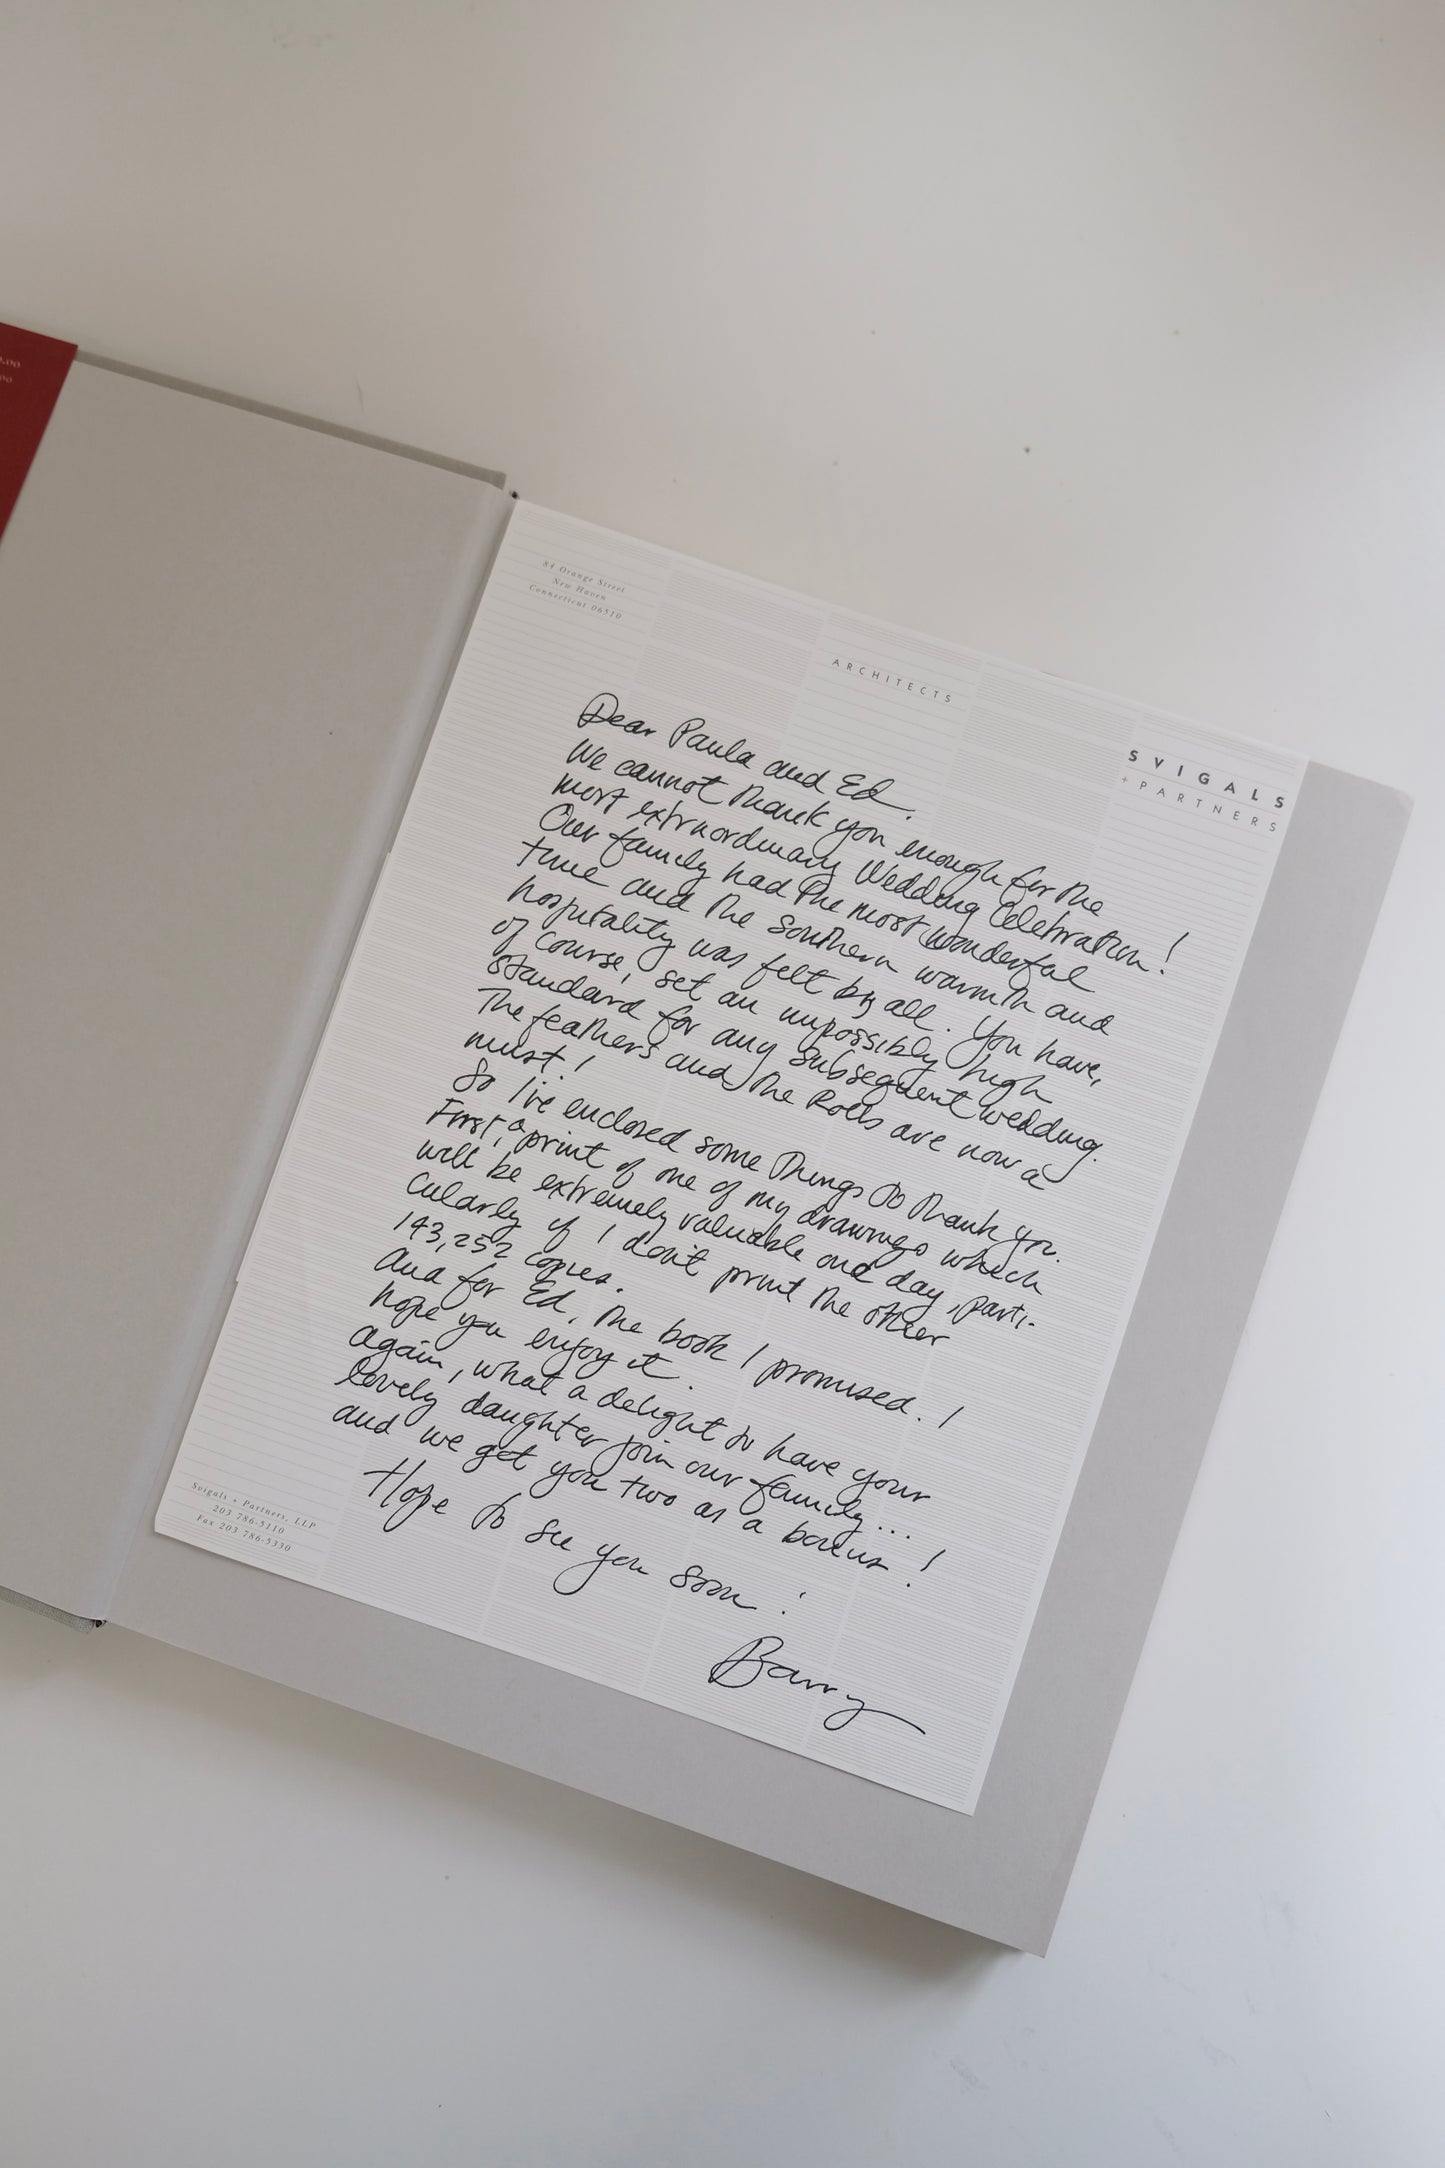 0.00
00
84 Orange Street
New Haven
Connecticut 06510
ARCHITECTS
SVIGALS
+ PARTNERS
Dear Paula and Ed.
We cannot thank you enough for the
most extraordinary Wedding Celebration!
Our family had the most wonderful
time and the southern warmth and
hospitality was felt by all. You have,
of course, set an impossibly high
standard for any subsequent wedding.
The feathers and the Rolls are now a
must!
So I've enclosed some things to thank you.
First, a print of one of my drawings which
will be extremely valuable one day, parti-
cularly if I don't print the other
143,252 copies.
And for Ed, the book I promised. I
hope you enjoy it.
Again, what a delight to have your
lovely daughter join our family...
and we get you two as a bonus!
Hope to see you soon!
Barry
Svigals + Partners, LLP
203 786-5110
Fax 203 786-5330